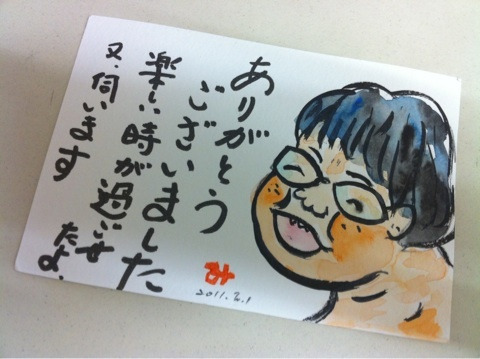 ありがとう
ございました
楽しい時が過ごせ
たよ、
又、伺います
み
2011.2.1